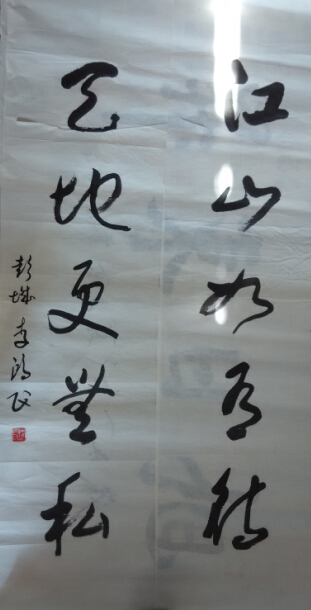 江山如有待
天地更無私
彭城 李 民